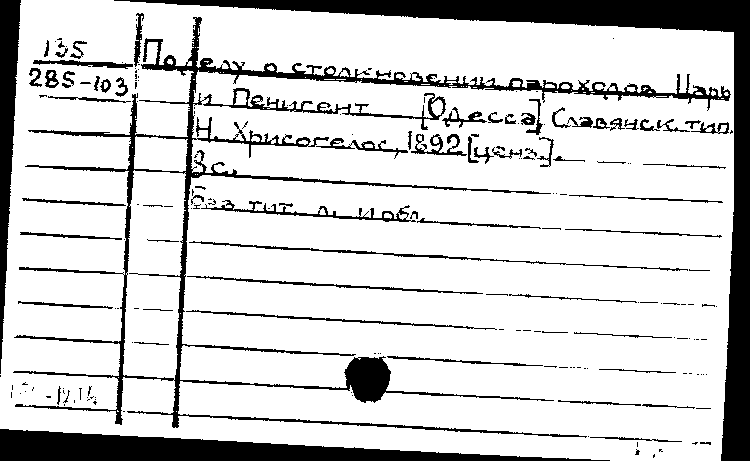 135
По делу о столкновении пароходов Царь
285-103
и Пенигент [Одесса], Славянск. тип.
Н. Хрисогелос, 1892 [ценз.].
8 с.
Без тит. л. и обл.